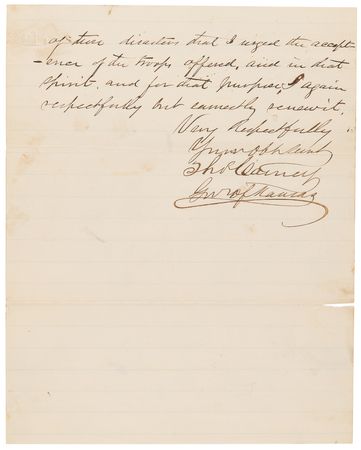 of these disasters that I urged the accept-
-ence of the troops offered, and in that
spirit and for that purpose, I again
respectfully but earnestly renew it.
Very Respectfully
Your obt Servt
Tho Carney
Gov of Kansas